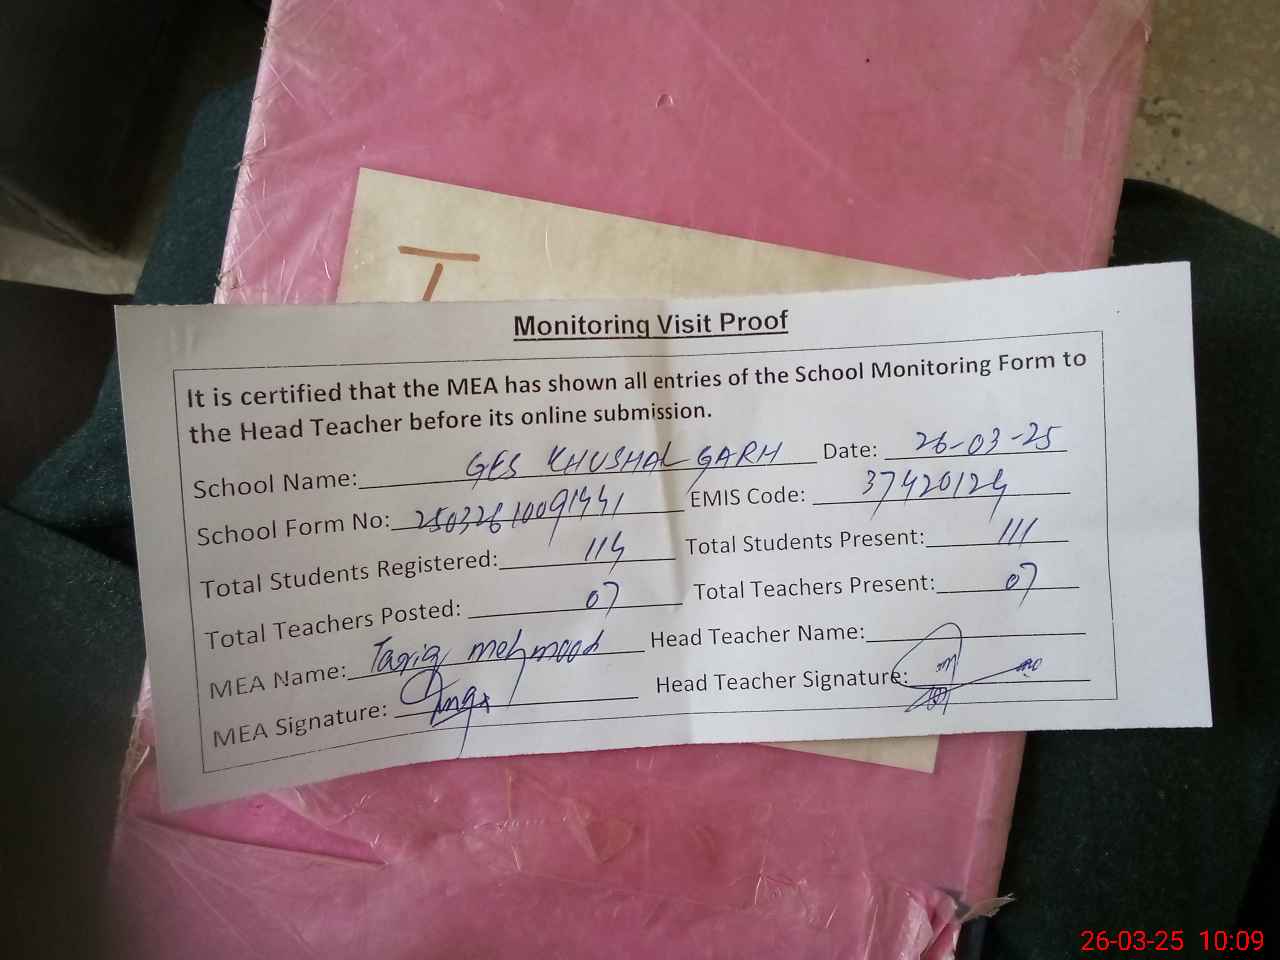 I
Monitoring Visit Proof
It is certified that the MEA has shown all entries of the School Monitoring Form to
the Head Teacher before its online submission.
School Name: GES KHUSHAL GARH Date: 26-03-25
School Form No: 25032610091441 EMIS Code: 37420124
Total Students Registered: 114 Total Students Present: 111
Total Teachers Posted: 07 Total Teachers Present: 07
MEA Name: Tariq mehmood Head Teacher Name:
MEA Signature: Head Teacher Signature:
26-03-25 10:09